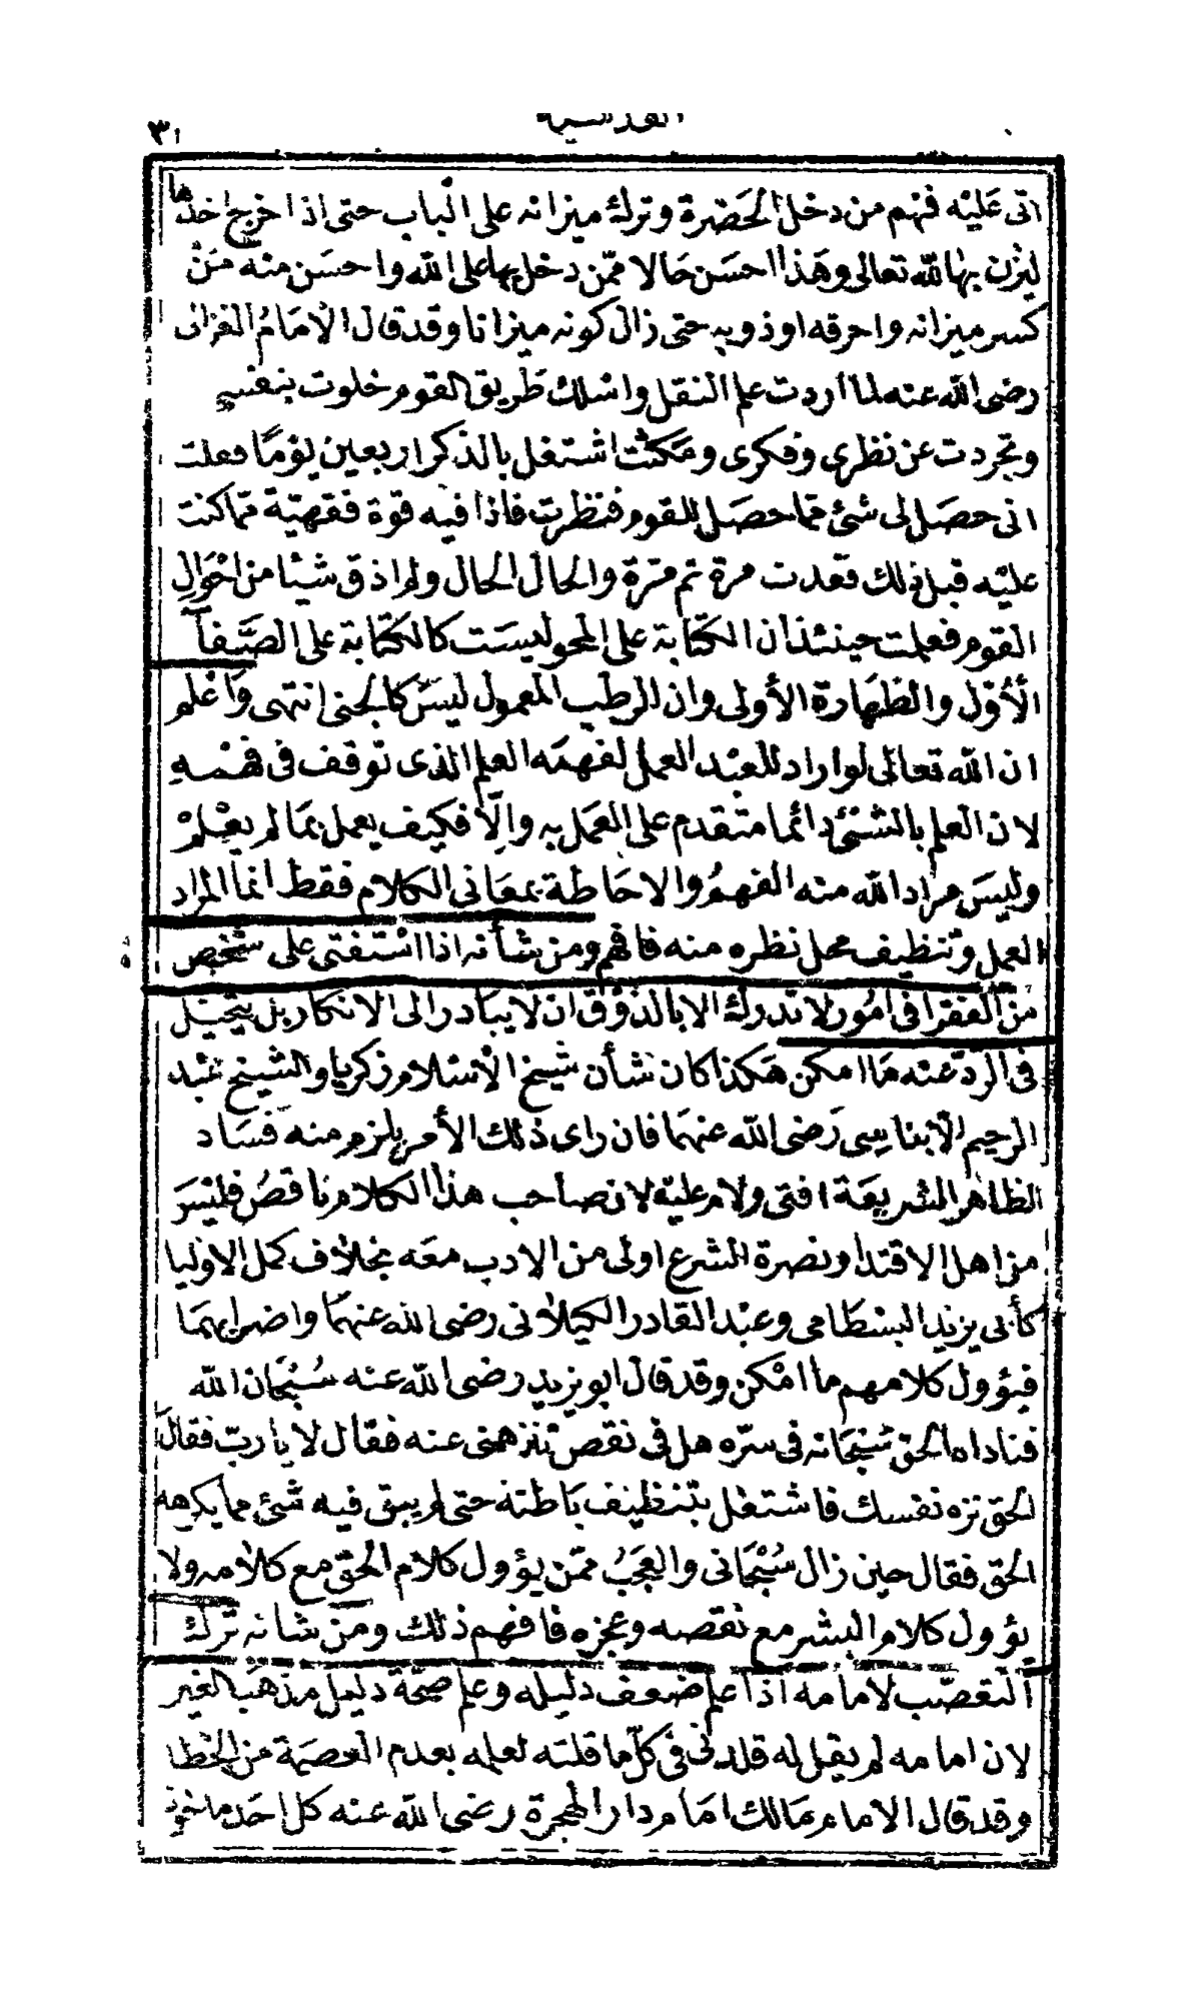 القدسية
٣١
اتى عَليْه فنهم من دخل الحَضرة وترك ميزانه على الباب حتى اذا خرج اخذها
ليزن بها لله تعالى وهَذا احسَن حَالا ممّن دخل بها على الله واحسَن منه مَنْ
كسر ميزانه واحرقه اوذوبه حتى زال كونه ميزانا وقد قال الامَامُ الغزالى
رضى الله عنه لما اردت علم النقل واسلك طَريق القوم خلوت بنفسى
وتجردت عن نظرى وفكرى ومَكثت اشتغل بالذكر اربعين يوْمًا فعلت
انى حصَل لى شئ ممّا حصَل للقوم فنظرت فاذا فيه قوة فقهيّة ممّا كنت
عليْه قبل ذلك فعدت مرة ثم مرّة والحال الحال ولم اذق شيئا من احْوَالِ
القوم فعلمت حينئذ ان الكتابة على المحو ليسَت كالكتابة على الصَّفآ
الأوّل والطهَارة الأولى وان الرطب المعمول ليسَ كالجنى انتهى وَاعْلم
ان الله تعالى لو اراد للعبْد العمل لفهمَه العلم الذى توقف فى فهْمهِ
لان العلم بالشئ دائما متقدم على العمَل به والّا فكيف يعمل بمَا لم يعْلمْ
وليسَ مراد الله منه الفهمُ والاحَاطة بمعَانى الكلام فقط انما المراد
العمل وتنظيف محل نظره منه فافهم ومن شأنه اذا اسْتفتى على شخص
من الفقرا فى امُور لا تدرك الا بالذوْق ان لا يبَادر الى الانكار بل يتحيّل
فى الردّ عنه مَا امكن هَكذا كان شأن شيخ الاسْلام زكريا والشيخ عبْد
الرحيم الابناسى رَضى الله عنهمَا فان راى ذلك الأمر يلزم منه فسَاد
الظاهر الشريعَة افتى ولام عليْه لان صاحب هذا الكلام ناقصُ فليْسَ
من اهل الاقتدا ونصرة الشرع اولى من الادب معَه بخلاف كمل الاوليا
كأبى يزيد البسْطامى وعبْد القادر الكيلانى رضى الله عنهمَا واضرابهمَا
فيؤول كلامهم ما امْكن وقد قال ابو يزيد رضى الله عنه سُبْحَان الله
فناداه الحق سُبْحَانه فى سرّه هل فى نقص تنزهنى عنه فقال لا يا ربّ فقال
الحق نزه نفسك فاشتغل بتنظيف بَاطنه حتى لم يبق فيه شئ مما يكرهه
الحق فقال حين زال سُبْحَانى والعجَبُ ممّن يؤول كلام الحق مع كلامه ولا
يؤول كلام البشر مع نقصه وعجزه فافهم ذلك ومَنْ شانه ترك
التعصّب لامامه اذا علم ضعف دليله وعلم صحّة دليل مذهَب الغير
لان امامه لم يقل له قلدنى فى كلّ ما قلته لعلمه بعدم العصمَة من الخطا
وقد قال الامام مَالك امَام دار الهجرة رضى الله عنه كل احَد ماخوذ